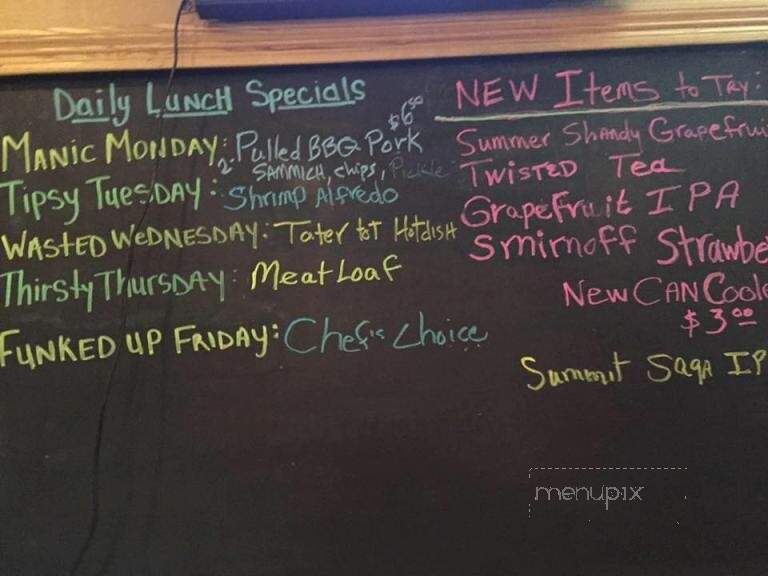 Daily Lunch Specials
$6.00
Manic Monday: Pulled BBQ Pork
Sammich, chips, Pickle
Tipsy Tuesday: Shrimp Alfredo
Wasted Wednesday: Tater tot Hotdish
Thirsty Thursday: Meat Loaf
Funked up Friday: Chef's choice
NEW Items to Try:
Summer Shandy Grapefrui
Twisted Tea
Grapefruit IPA
Smirnoff Strawbe
New CAN Coole
$3.00
Summit Saga IP
menupix